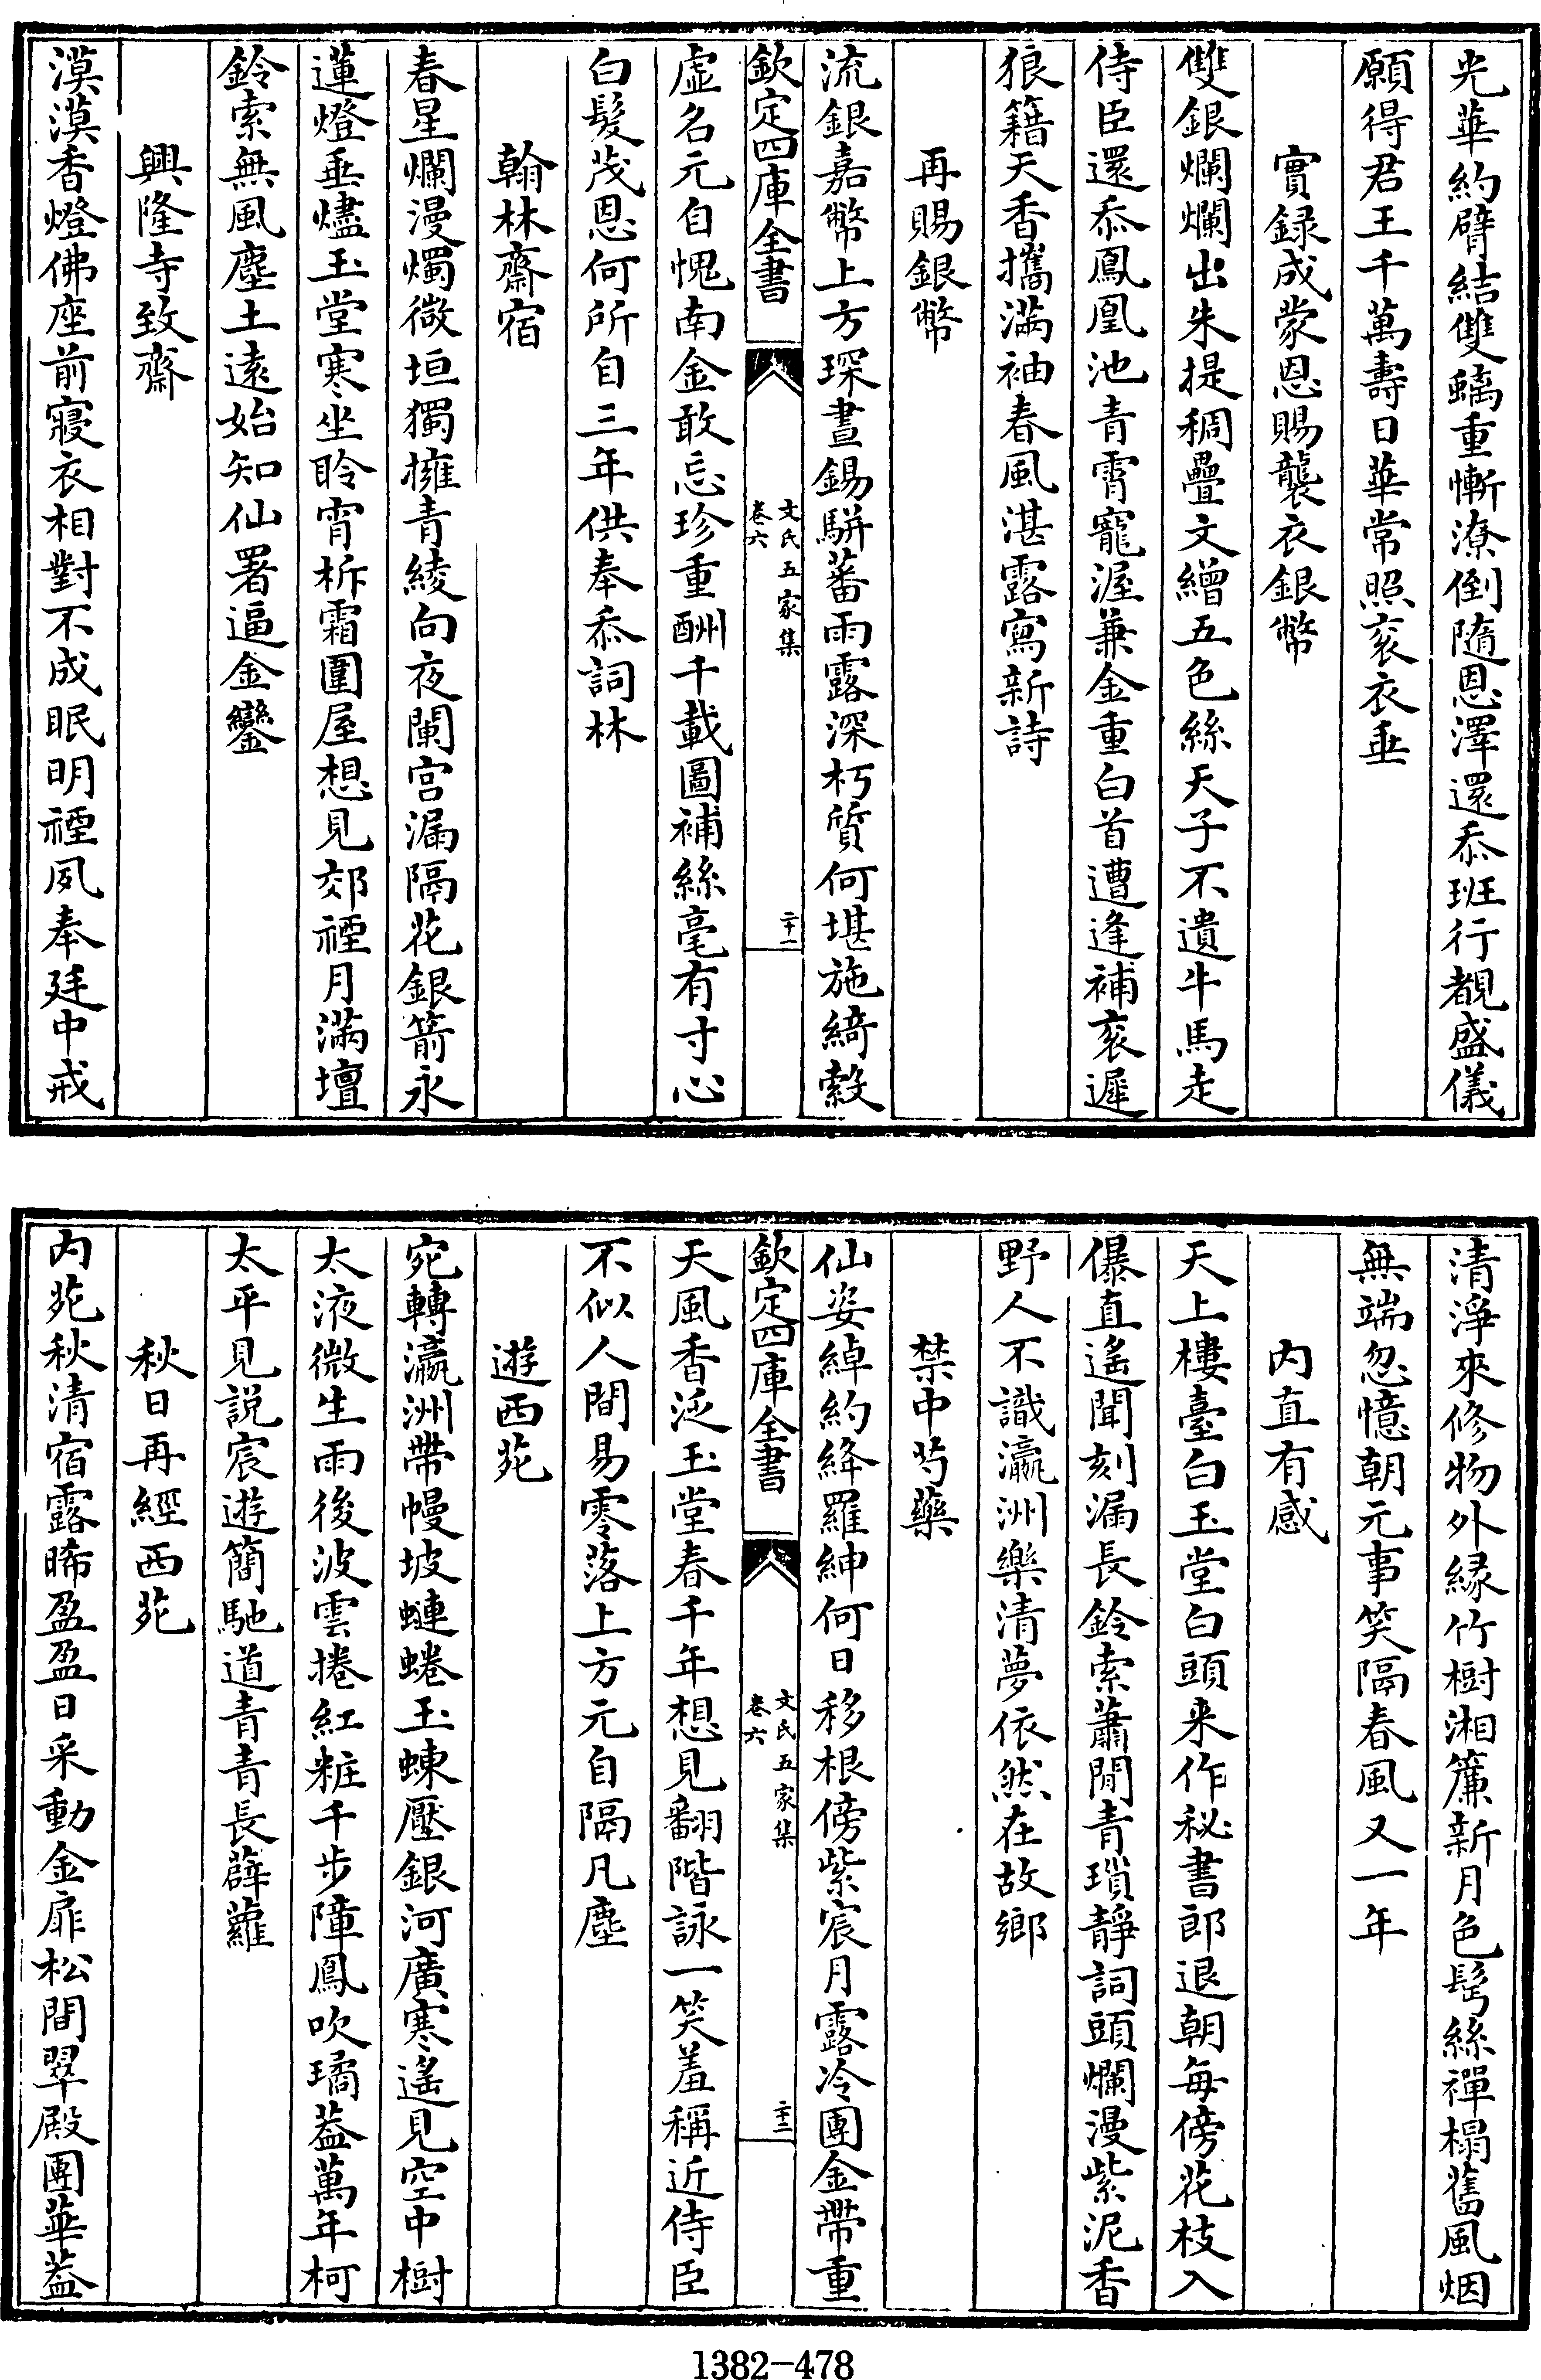 光華約臂結雙螭重慚潦倒隨恩澤還忝班行覩盛儀
願得君王千萬壽日華常照袞衣垂
實録成蒙恩賜襲衣銀幣
雙銀爛爛出朱提稠疊文繒五色絲天子不遺牛馬走
侍臣還忝鳳凰池青霄寵渥兼金重白首遭逢補袞遲
狼籍天香攜滿袖春風湛露寫新詩
再賜銀幣
流銀嘉幣上方琛晝錫駢蕃雨露深朽質何堪施綺縠
欽定四庫全書
文氏五家集
卷六
二十一
虛名元自愧南金敢忘珍重酬千載圖補絲毫有寸心
白髮茂恩何所自三年供奉忝詞林
翰林齋宿
春星爛漫燭微垣獨擁青綾向夜闌宫漏隔花銀箭永
蓮燈垂燼玉堂寒坐聆宵柝霜圍屋想見郊禋月滿壇
鈴索無風塵土遠始知仙署逼金鑾
興隆寺致齋
漠漠香燈佛座前寢衣相對不成眠明禋夙奉廷中戒
清淨來修物外緣竹樹湘簾新月色髩絲禪榻舊風烟
無端忽憶朝元事笑隔春風又一年
内直有感
天上樓臺白玉堂白頭来作秘書郎退朝每傍花枝入
儤直遙聞刻漏長鈴索蕭閒青瑣靜詞頭爛漫紫泥香
野人不識瀛洲樂清夢依然在故鄉
禁中芍藥
仙姿綽約絳羅紳何日移根傍紫宸月露冷團金帶重
欽定四庫全書
文氏五家集
卷六
二十二
天風香泛玉堂春千年想見翻階詠一笑羞稱近侍臣
不似人間易零落上方元自隔凡塵
遊西苑
宛轉瀛洲帶幔坡蜿蜷玉蝀壓銀河廣寒遙見空中樹
太液微生雨後波雲捲紅粧千步障鳳吹璚葢萬年柯
太平見説宸遊簡馳道青青長薜蘿
秋日再經西苑
内苑秋清宿露晞盈盈日采動金扉松間翠殿團華葢
1382-478